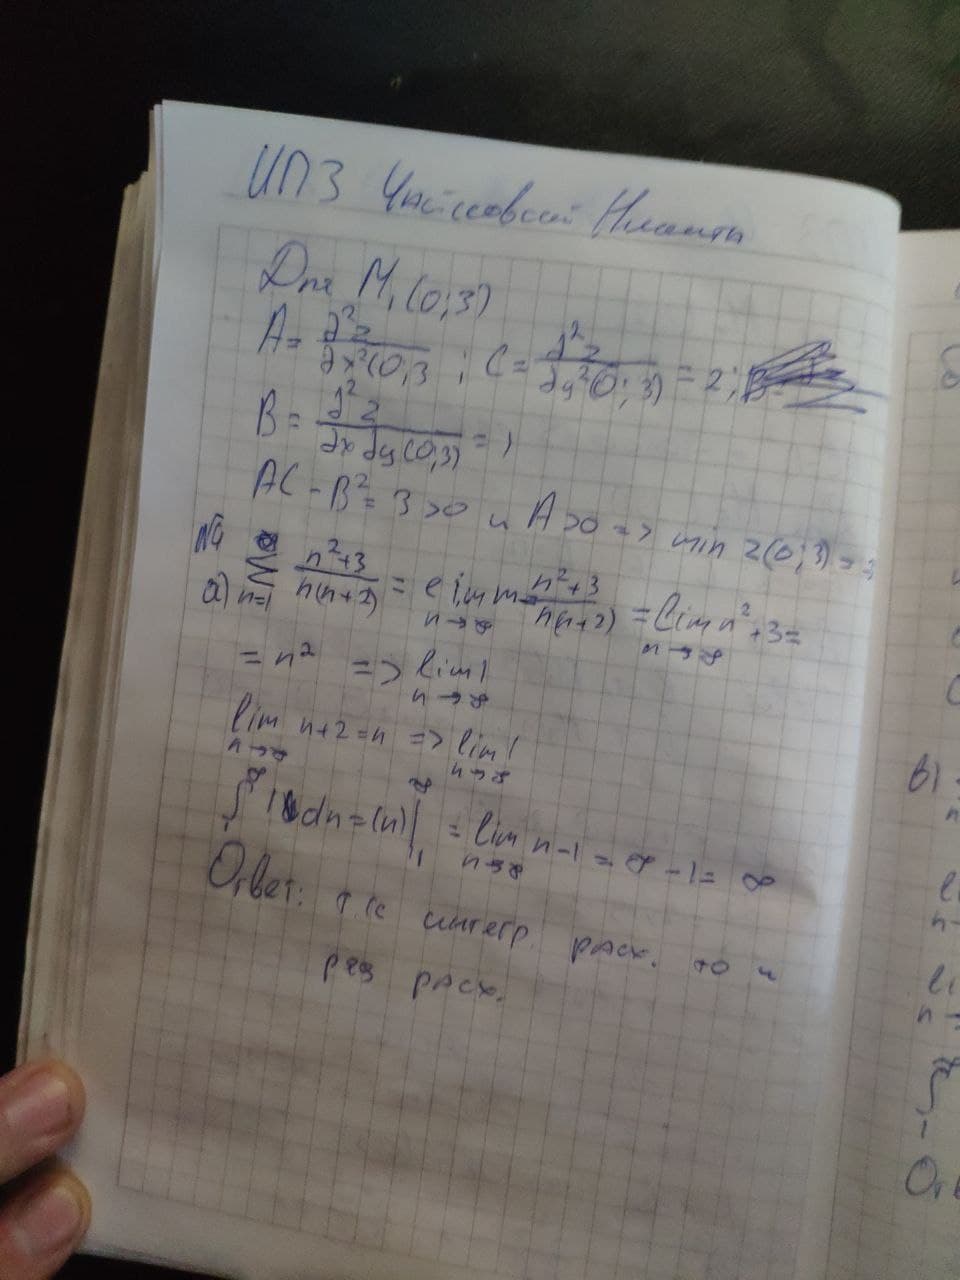 ИПЗ
Для М₁(0;3)
A = ∂²z/∂x²(0;3 ; C = ∂²z/∂y²(0;3) = 2;
B = ∂²z/∂x∂y(0;3) = 1
AC - B² = 3 > 0 и A > 0 => min z(0;3) =
№4
а) ∑ n=1 ∞ n²+3/n(n+2) = lim n→∞ n²+3/n(n+2) = lim n→∞ n²+3 =
= n² => lim n→∞ 1
lim n→∞ n+2 = n => lim n→∞ 1
∫₁^∞ 1 dn = (n)|₁^∞ = lim n→∞ n-1 = ∞ -1 = ∞
Ответ: т.к интегр. расх. то и
ряд расх.
б
в)
n
n
n
Отв